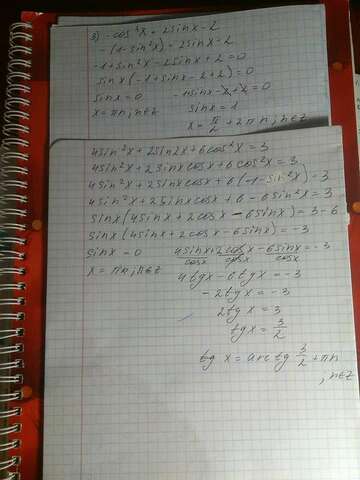 3) -cos²x = 2sinx - 2
-(1-sin²x) = 2sinx - 2
-1+sin²x - 2sinx + 2 = 0
sinx(-1+sinx-2+2) = 0
sinx = 0 -1sinx-2+2 = 0
x = πn, n∈Z sinx = 1
x = π/2 + 2πn, n∈Z
4sin²x + 2sin2x + 6cos²x = 3
4sin²x + 2sinxcosx + 6cos²x = 3
4sin²x + 2sinxcosx + 6(-1-sin²x) = 3
4sin²x + 2sinxcosx + 6 - 6sin²x = 3
sinx(4sinx + 2cosx - 6sinx) = 3-6
sinx(4sinx + 2cosx - 6sinx) = -3
sinx = 0 4sinx/cosx + 2cosx/cosx - 6sinx/cosx = -3
x = πn, n∈Z 4tgx - 6tgx = -3
-2tgx = -3
2tgx = 3
tgx = 3/2
tg x = arctg 3/2 + πn
, n∈Z